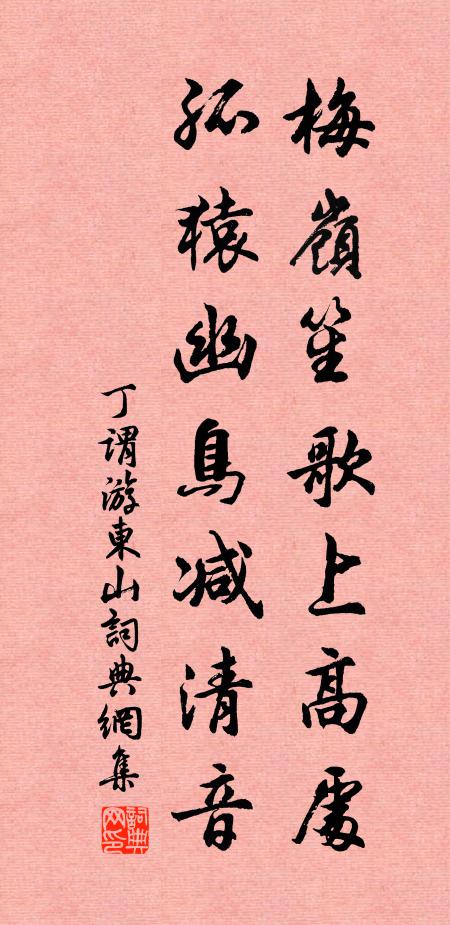 梅嶺笙歌上高處
孤猿幽鳥減清音
丁謂游東山詞典網集
詞典網印